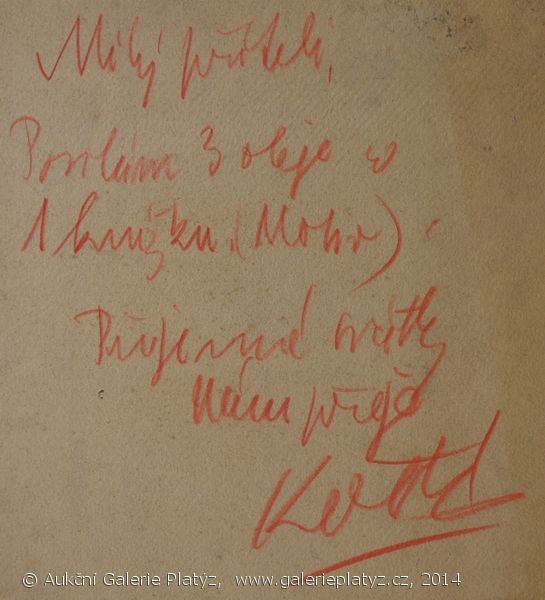 Milý příteli,
Posílám 3 oleje a
1 knížku (Motiv).
Příjemné svátky
Vám přeje
© Aukční Galerie Platýz, www.galerieplatyz.cz, 2014